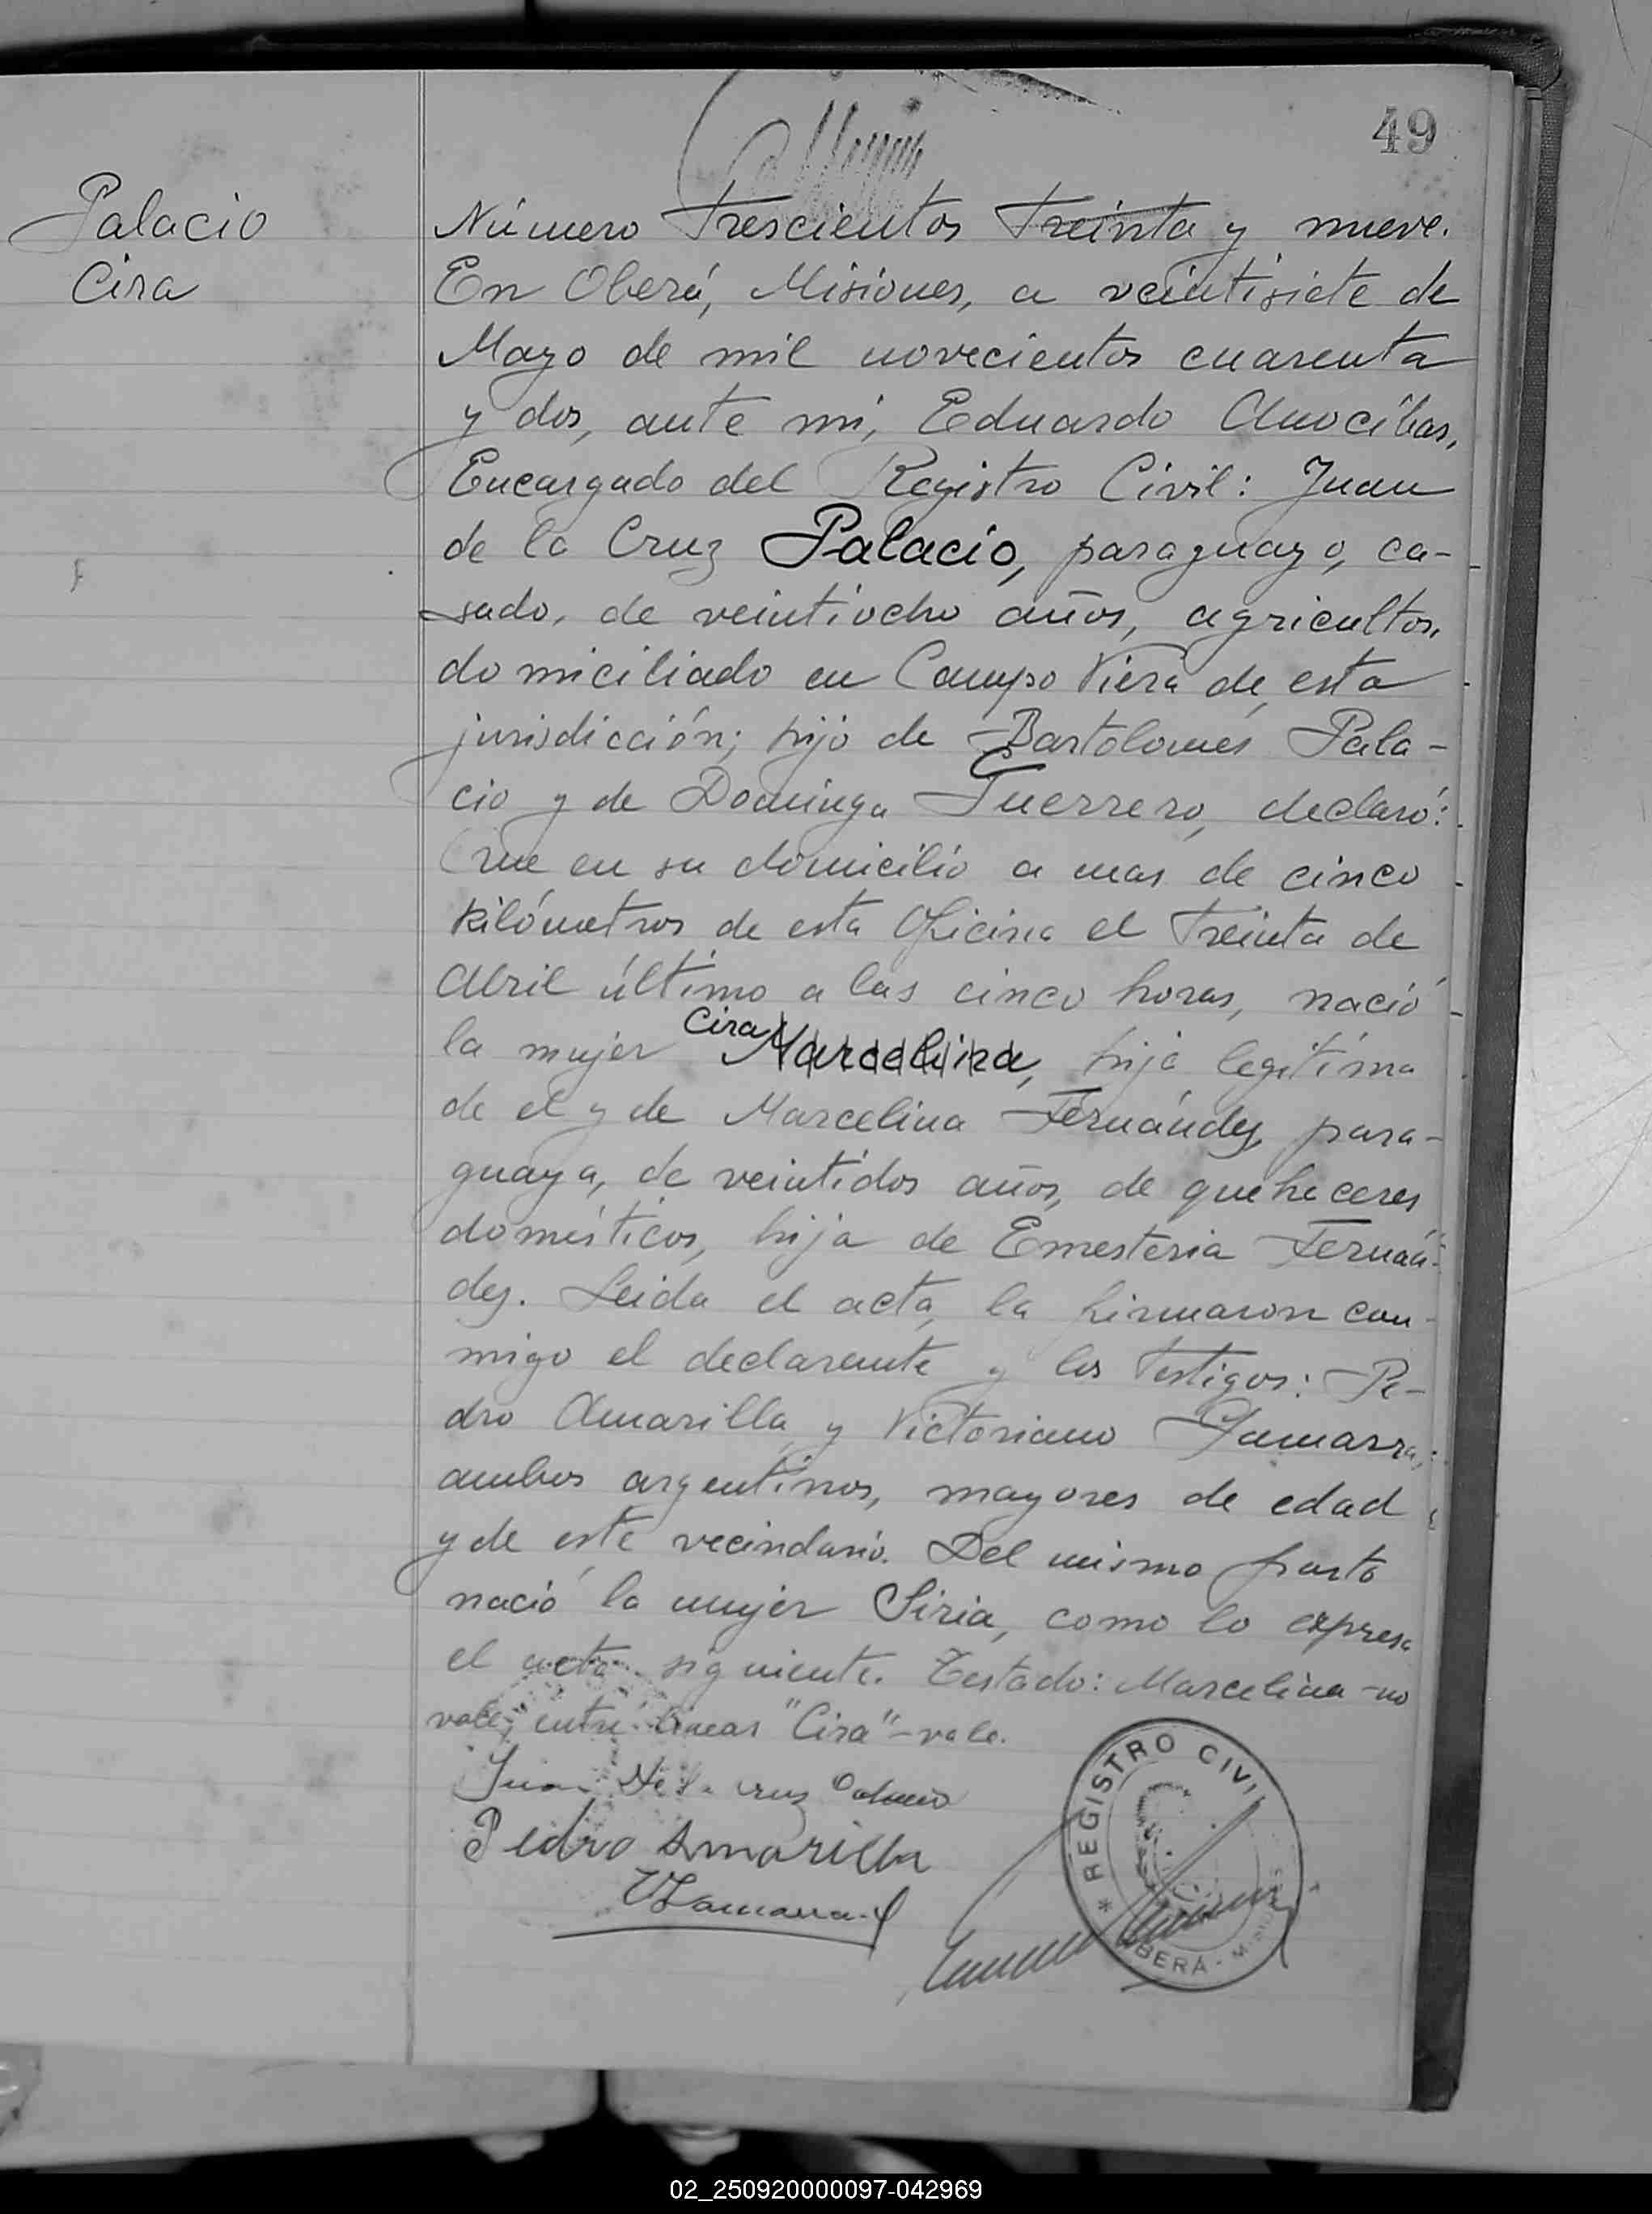 49
Palacio
Cira
Número Trescientos Treinta y nueve.
En Oberá, Misiones, a veintisiete de
Mayo de mil novecientos cuarenta
y dos, ante mí, Eduardo Anocibas,
Encargado del Registro Civil: Juan
de la Cruz Palacio, paraguayo, ca-
sado, de veintiocho años, agricultor,
domiciliado en Campo Viera de esta
jurisdicción; hijo de Bartolomés Pala-
cio y de Dominga Guerrero, declaró:
Que en su domicilio a mas de cinco
kilómetros de esta Oficina el Treinta de
Abril último a las cinco horas, nació
la mujer Cira Marcelina, hija legítima
de el y de Marcelina Fernández, para-
guaya, de veintidos años, de quehaceres
domésticos, hija de Emesteria Fernán-
dez. Leida el acta, la firmaron con-
migo el declarante y los Testigos: Pe-
dro Amarilla y Victoriano Gamarra,
ambos argentinos, mayores de edad
y de este vecindario. Del mismo parto
nació la mujer Siria, como lo expresa
el acta siguiente. Testado: Marcelina - no
vale; entre lineas "Cira" - vale.
Juan De la Cruz Palacio
Pedro Amarilla
VGamarra
* REGISTRO CIVIL
OBERÁ - MISIONES
02_250920000097-042969